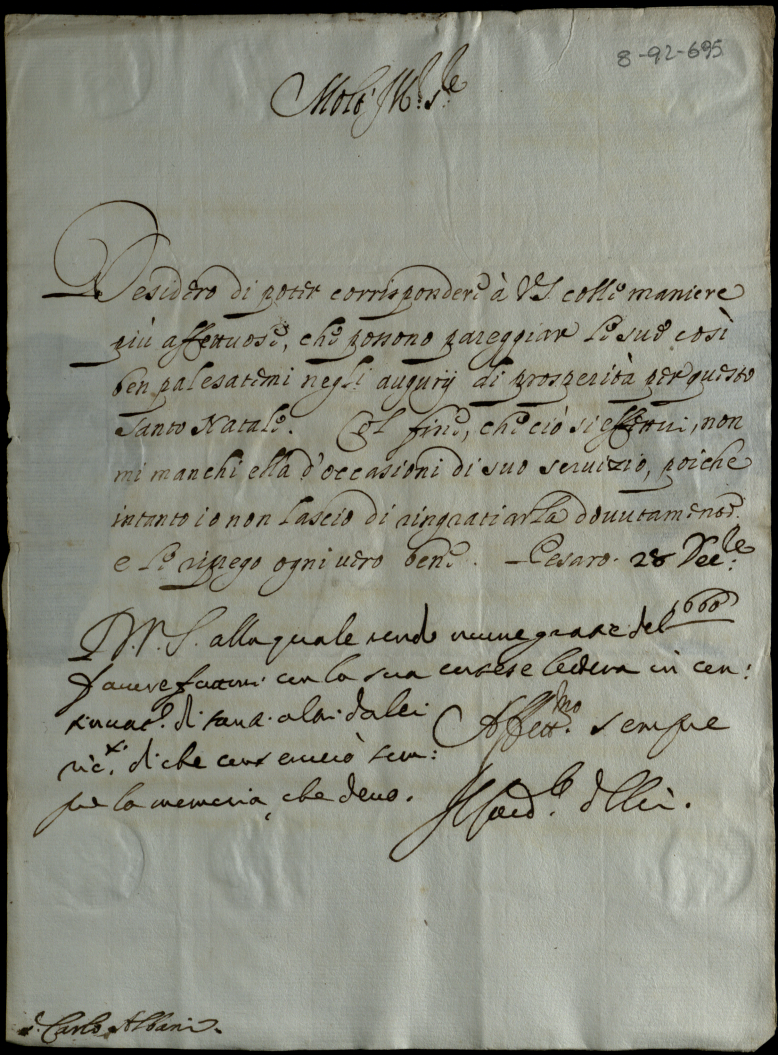 8-92-695
Molt' Ill.e S.re
Desidero di poter corrisponderè à V.S. collè maniere
più affettuosè, chè possono pareggiar lè suè così
ben palesatemi negli augurij di prosperità per questo
Santo Natalè. Col finè, chè ciò si effettui, non
mi manchi ella d'occasioni di suo seruizio, poichè
intanto io non lascio di ringratiarla douutamente.
e lè prego ogni uero benè. Pesaro. 28 Xec.le
1660
D.V.S. alla quale rendo nuoue grazie del
fauore fattomi con la sua cortese lettera in con:
tinuaz. di tanti altri da lei
ric.ti di che conseruerò sem:
pre la memoria, che deuo.
Affett.mo sempre
Il Card.le d'Elci.
S. Carlo Albani.